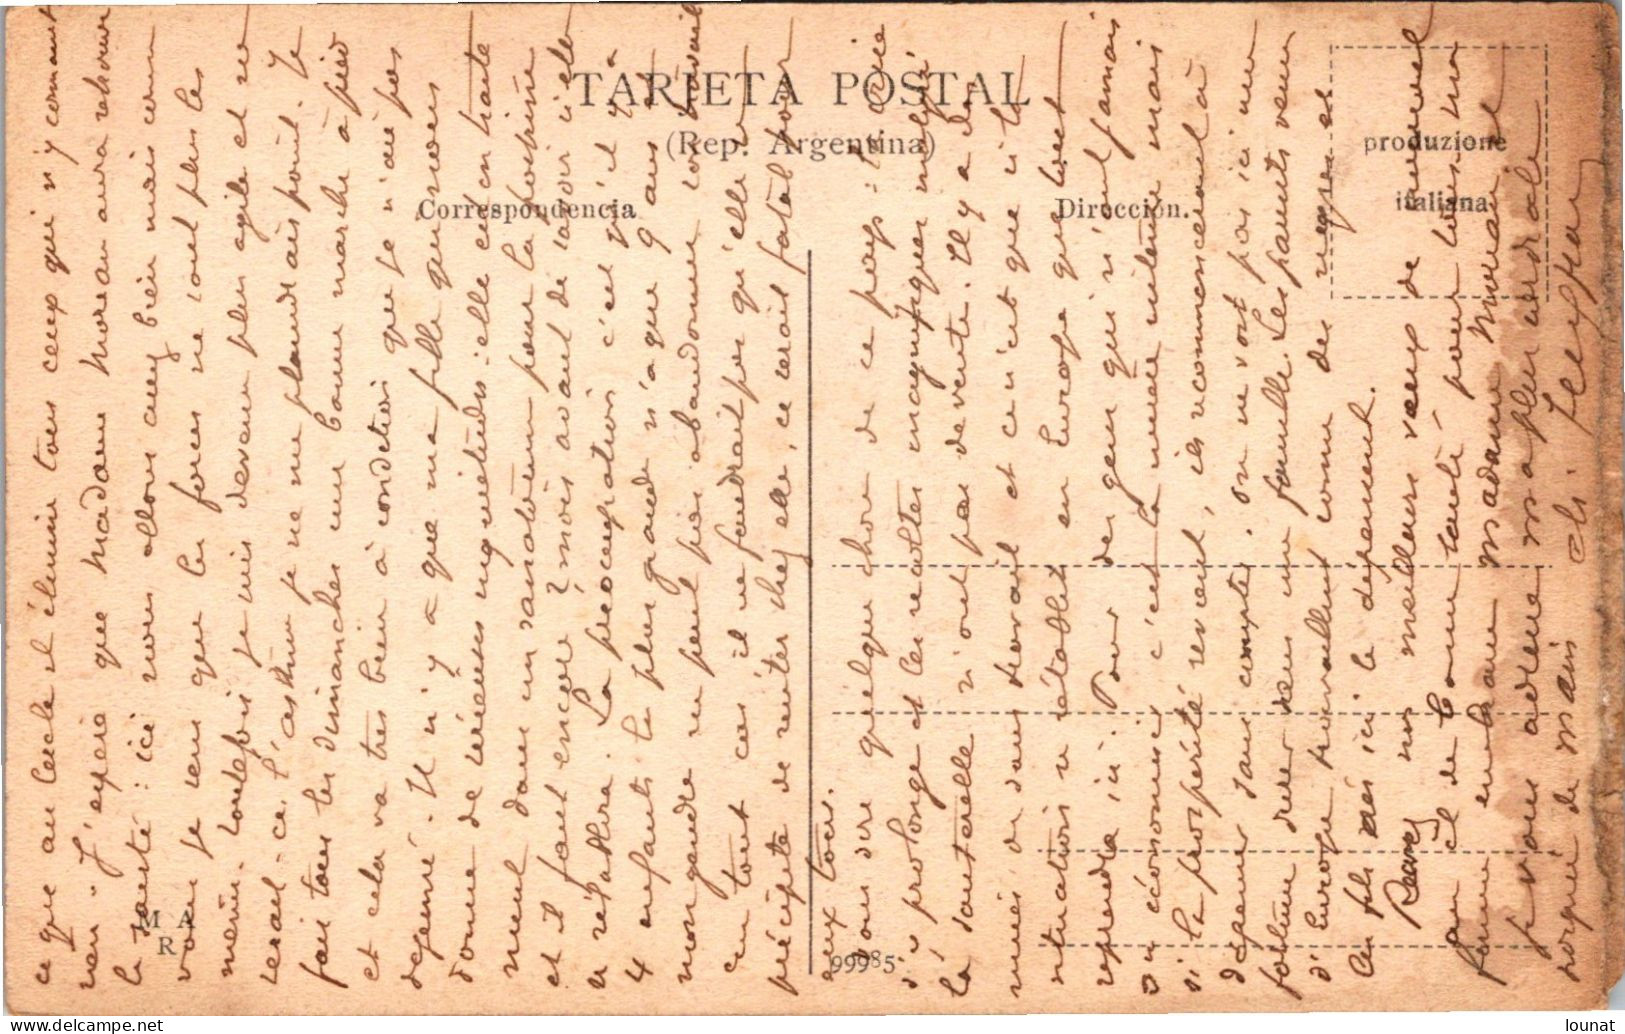 TARJETA POSTAL
(Rep. Argentina)
Correspondencia
Dirección.
produzione
italiana
M A
R
99985
ce que au cercle il élimine tous ceux qui n'y comment
rien. J'espère que madame Moreau aura retrouvé
la santé : ici nous allons assez bien mais comme
vous je sens que les forces ne sont plus les
même. toutefois je suis devenu plus agile et ne
serait-ce l'asthme je ne me plaindrais point. Je
fais tous les dimanches une bonne marche à pied
et cela va très bien à condition que je n'aie pas
déjeuné. Il n'y a que ma fille qui nous
donne de sérieuses inquiétudes : elle est en traite
ment dans un sanatorium pour la poitrine
et il faut encore 2 mois avant de savoir si elle
se rétablira. La préoccupation c'est qu'il y a
4 enfants le plus grand n'a que 9 ans et
mon gendre ne peut pas abandonner son travail
En tout cas il ne faudrait pas qu'elle se
précipite de rentrer chez elle, ce serait fatal pour
eux tous.
vous dire quelque chose de ce pays : la crise
s'y prolonge et les récoltes magnifiques malgré
la sauterelle n'ont pas de vente. Il y a des
mines de sans travail et ce n'est que si la
situation se rétablit en Europe que tout
reprendra ici. Pour des gens qui n'ont jamais
su économiser c'est la misère intense mais
si la prospérité revient, ils recommenceront à
dépenser sans compter. On ne voit pas ici une
fortune durer dans une famille. Les parents venus
d'Europe travaillent comme des nègres et
les fils nés ici le dépensent.
Recevez nos meilleurs vœux de nouvel
an et de bonne santé pour tous. Ma
femme embrasse madame Moreau
je vous adresse ma plus cordiale
poignée de main